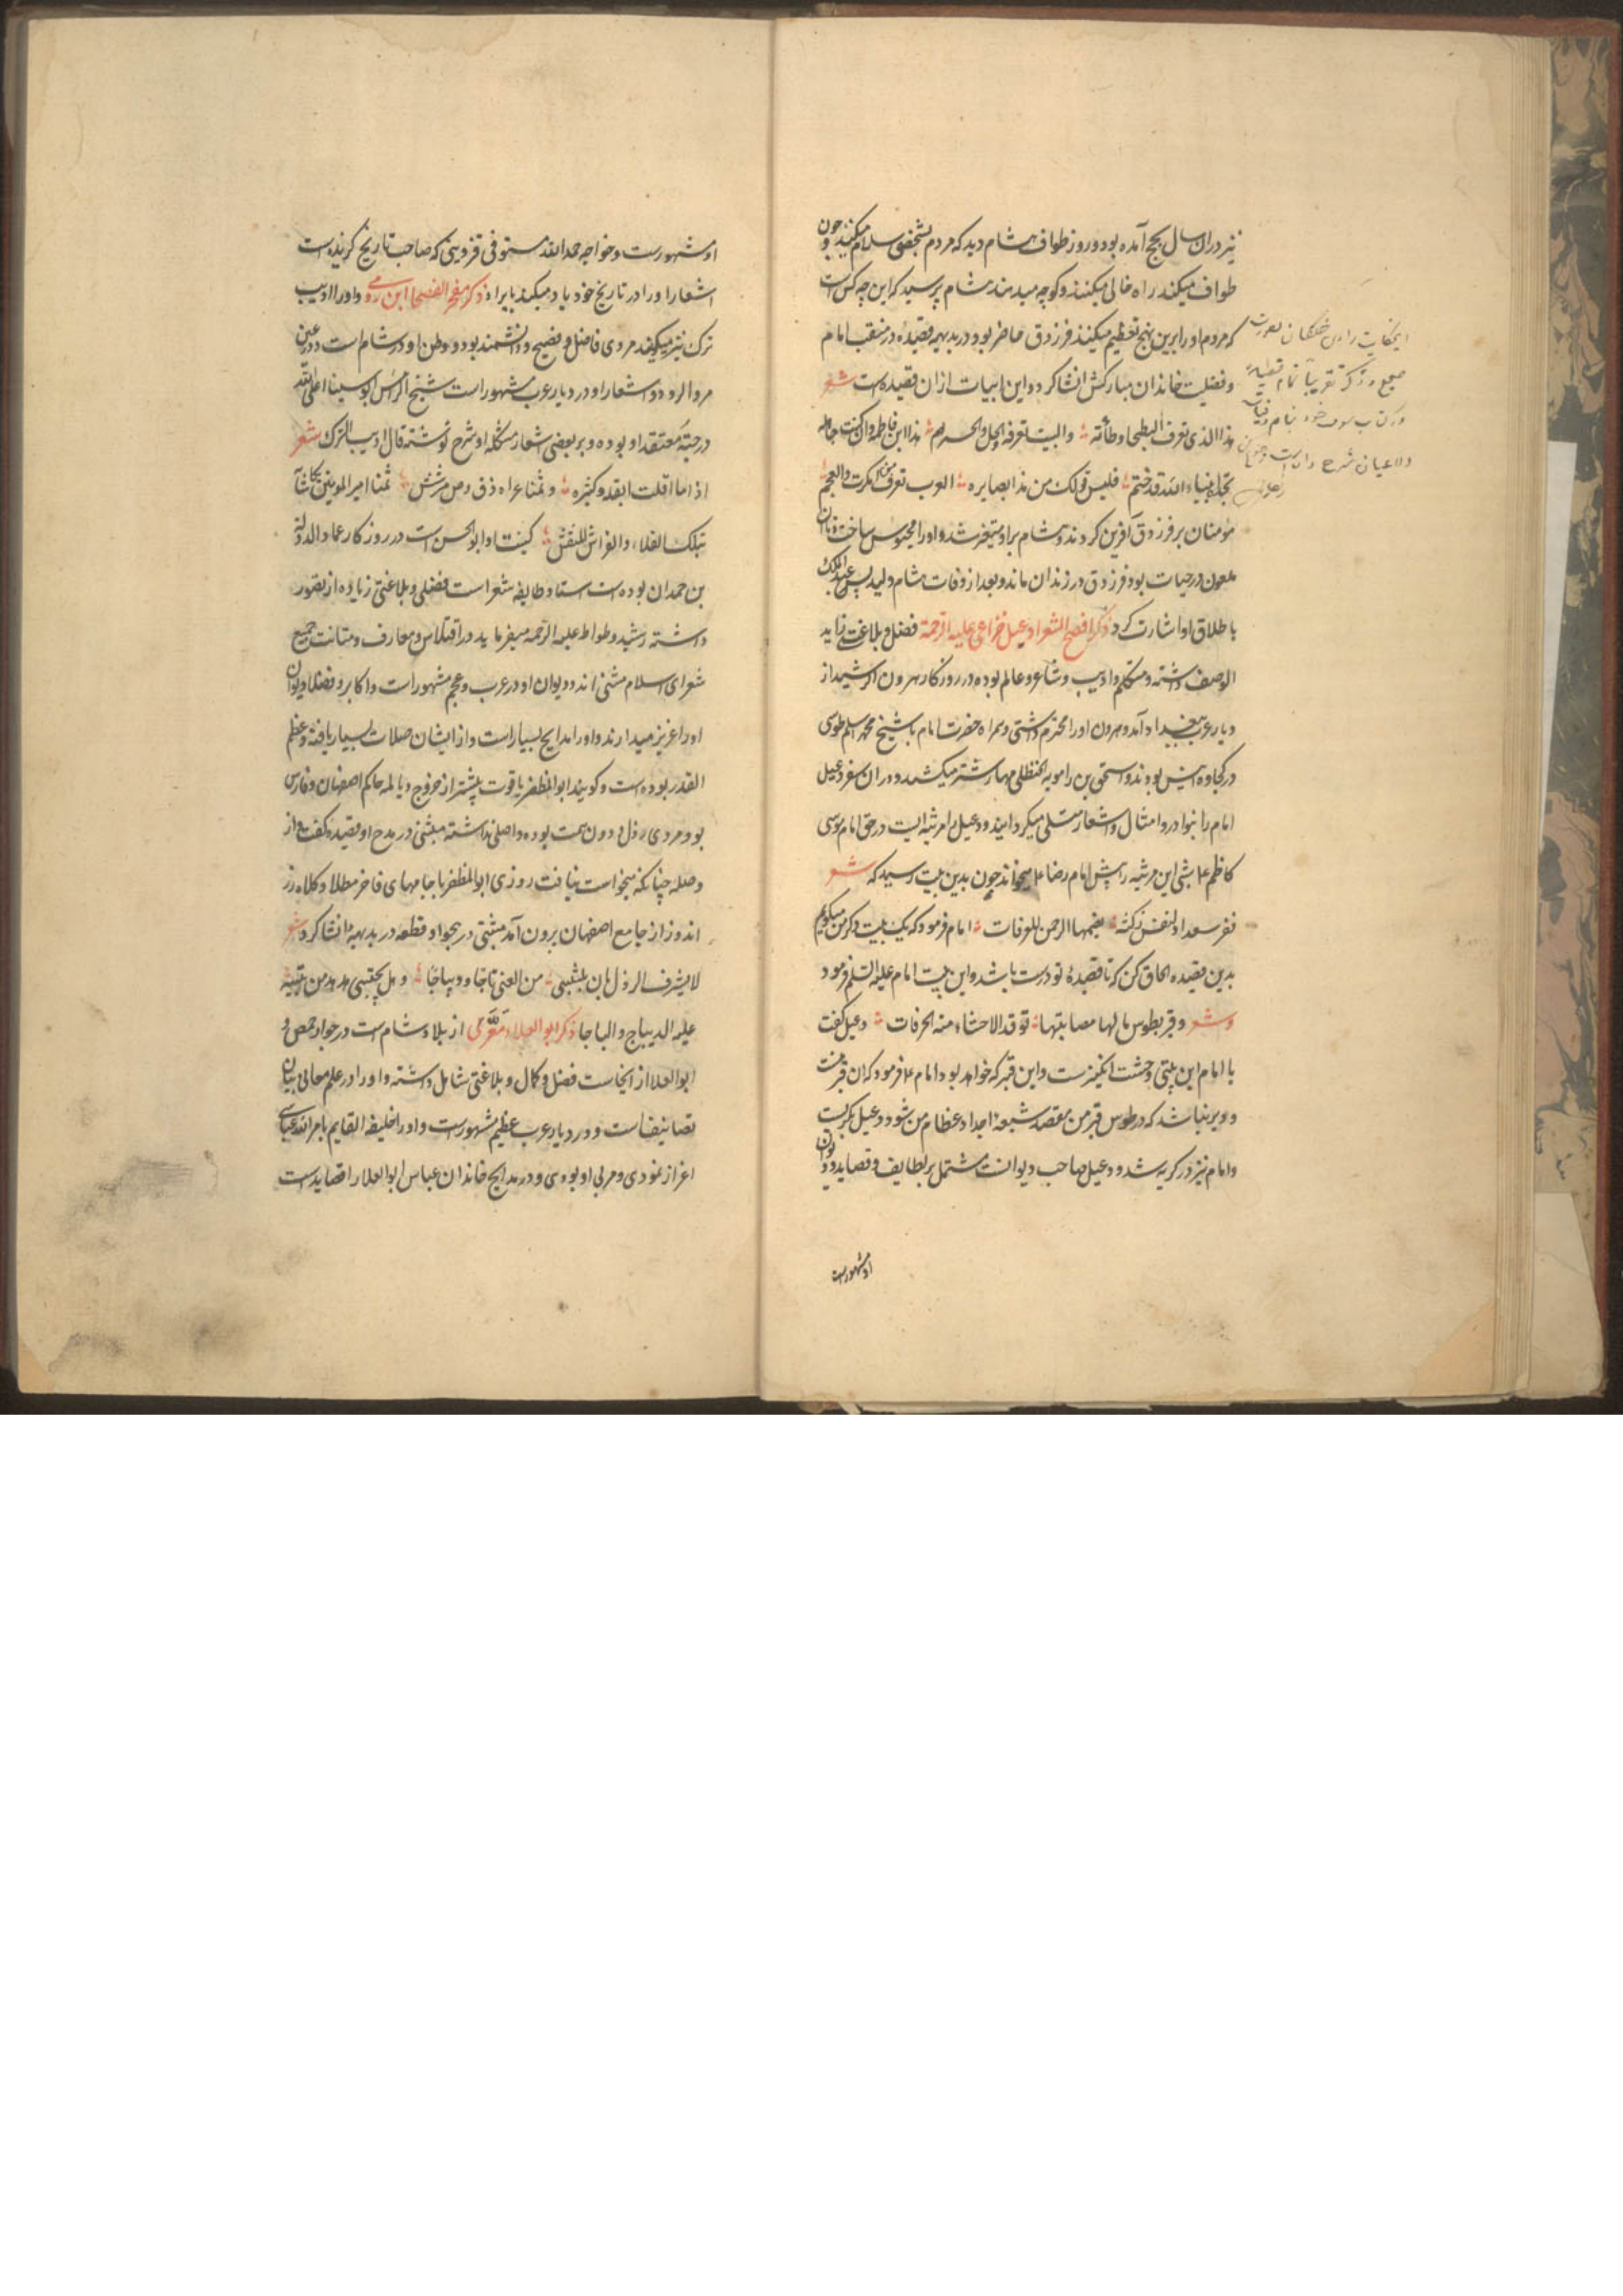 نیز دران سال بحج آمده بود و روز طواف هشام دید که مردم بشخصی سلام میکنند و چون
طواف میکند راه خالی میکنند و کوچه میدهند هشام پرسید که این چه کس است
که مردم او را برین نهج تعظیم میکنند فرزدق حاضر بود در بدیهه قصیدهٔ در منقبت امام
و فضلیت خاندان مبارکش انشا کرد و این ابیات ازان قصیده است شعر
هذا الذی تعرف البطحا وطأته والبیت تعرفه والحل والحرم هذا ابن فاطمة ان کنت جاهله
بجده انبیاء الله قد ختم فلیس قولک من هذا بضایره العرب تعرف من انکرت والعجم
مؤمنان بر فرزدق آفرین کردند و هشام برو متغیر شد و او را محبوس ساخت تا آن
ملعون در حیات بود فرزدق در زندان ماند و بعد از وفات هشام ولید بن عبد الملک
باطلاق او اشارت کرد ذکر افصح الشعرا دعبل خزاعی علیه الرحمة فضل و بلاغت زاید
الوصف داشته و متکلم و ادیب و شاعر و عالم بوده در روزکار هرون الرشید از
دیار عرب ببغداد آمد و هرون او را محترم داشتی و همراه حضرت امام با شیخ محمد اسلم طوسی
در کجاوه انیس بودند و اسحق بن راهویه الحنظلی مهار شتر میکشید و دران سفر دعبل
امام را بنوادر و امثال و اشعار متسلی میکردانید و دعبل را مرثیه ایست در حق امام موسی
کاظم ع شبی این مرثیه را پیش امام رضا ع میخواند چون بدین بیت رسید که شعر
فقر ببغداد لنفس زکیة یضمها الرحمن للغرفات امام فرمود که یک بیت دکر من میکویم
بدین قصیده الحاق کن که تا قصیدهٔ تو درست باشد و این بیت امام علیه السلم فرمود
شعر وقبر بطوس یا لها مصابتها توقد الاحشاء منه الحرقات دعبل کفت
یا امام این بیتی وحشت انکیزست و این قبر که خواهد بود امام ع فرمود که ان قبر منست
و دیر نباشد که در طوس قبر من مقصد شیعهٔ اجداد عظام من شود دعبل بکریست
و امام نیز در کریه شد و دعبل صاحب دیوانست مشتمل بر لطایف و قصاید و دیوان
او مشهورست
این حکایت را ابن خلکان بصورت
صحیح و ذکر تقریبا تمام قصیده
در کتاب خود بنام وفیات
الاعیان شرح داده است
او مشهورست و خواجه حمد الله مستوفی قزوینی که صاحب تاریخ کزیده است
اشعار او را در تاریخ خود یاد میکند بایراد ذکر مفخر الفصحا ابن رومی و او را ادیب
ترک نیز میکویند مردی فاضل و فصیح و دانشمند بوده و وطن او در شام است و در عین
مرو الرود و اشعار او در دیار عرب مشهور است شیخ الرئیس ابو سینا اعلی الله
درجته معتقد او بوده و بر بعضی اشعار مشکله او شرح نوشته قال ادیب الترک شعر
بتلک الفلاء والفراش للنقش کنیت او ابو الحسن است در روزکار عماد الدوله
بن حمدان بوده است استاد طایفه شعر است فضلی و بلاغتی زیاده از تصور
داشته رشید وطواط علیه الرحمه میفرماید در اقتباس و معارف و متانت جمیع
شعرای اسلام مثنی اند و دیوان او در عرب و عجم مشهور است و اکابر و فضلا دیوان
او را عزیز میدارند و او را مدایح بسیار است و از ایشان صلات بسیار یافته و عظیم
القدر بوده است و کویند ابو المظفر یاقوت پیشتر از خروج دیالمه حاکم اصفهان و فارس
بود و مردی رذل و دون همت بوده و اصلی نداشته متنبی در مدح او قصیده کفت و از
وصله چنانکه میخواست نیافت روزی ابو المظفر با جامهای فاخر مطلا و کلاه زر
اندوز از جامع اصفهان برون آمد متنبی در هجو او قطعه در بدیهه انشا کرد شعر
لا یشرف الرذل بان یلتبسی من الغنی تاجا و دیباجا و هل یحتسی هدهد من نتنه
علیه الدیباج والباجا ذکر ابو العلاء معری از بلاد شام است در جوار حمص و
ابو العلا از انجاست فضل و کمال و بلاغتی شامل داشته و او را در علم معانی بیان
تصانیف است و در دیار عرب عظیم مشهورست و او را خلیفه القایم بامر الله عباسی
اعزاز نمودی و مربی او بودی و در مدایح خاندان عباس ابو العلا را قصایدست